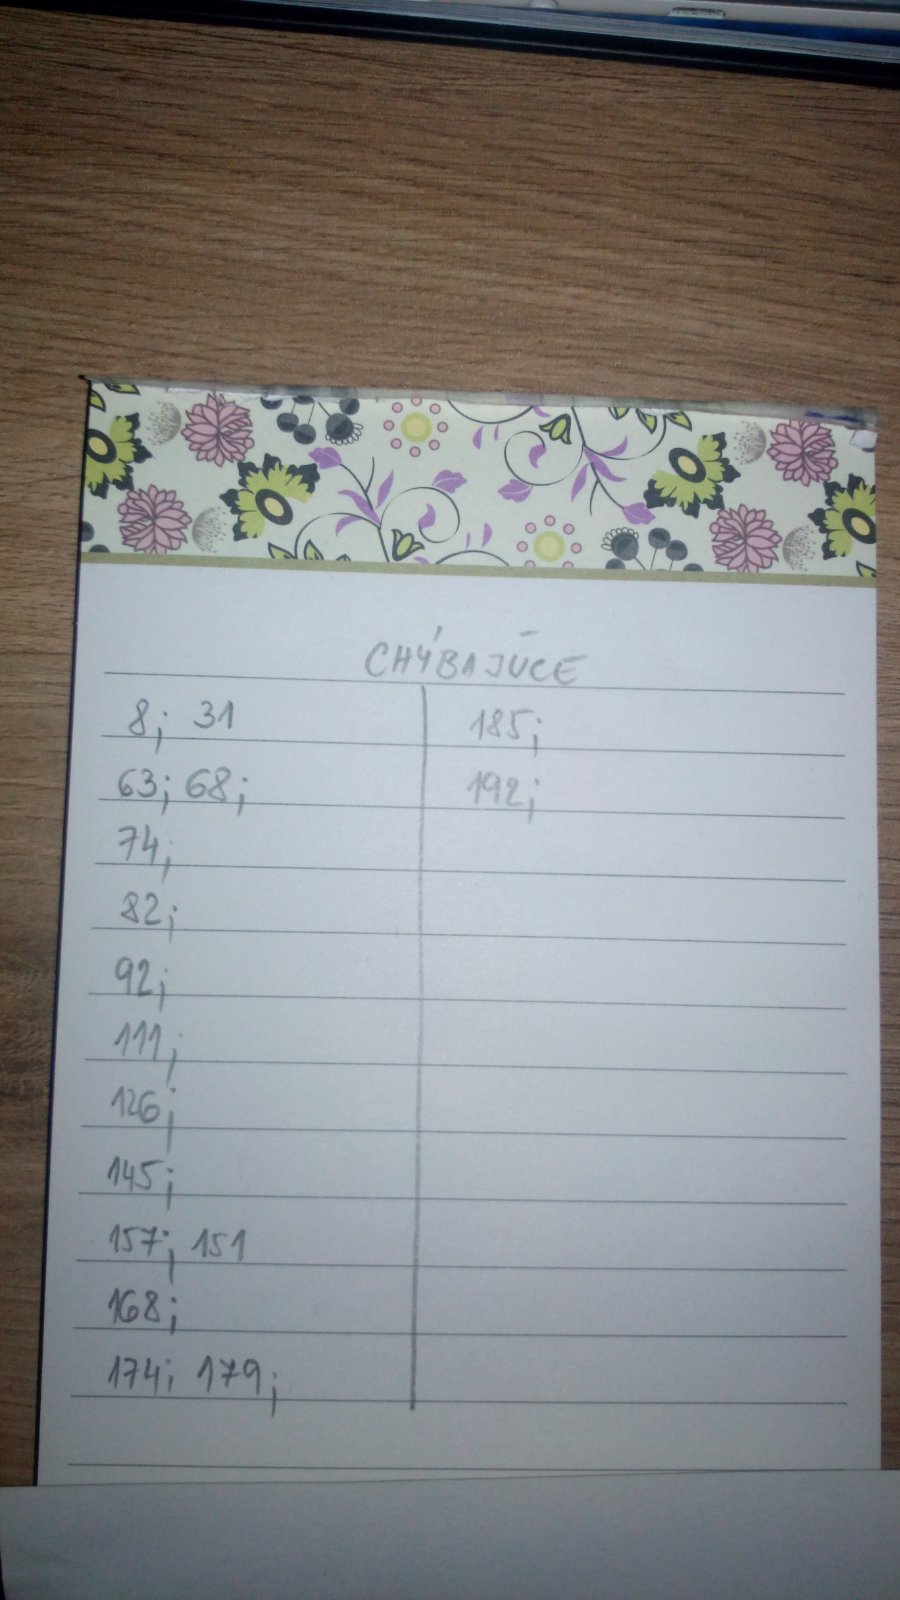 CHÝBAJÚCE
8; 31
63; 68;
74;
82;
92;
111;
126;
145;
157; 151
168;
174; 179;
185;
192;